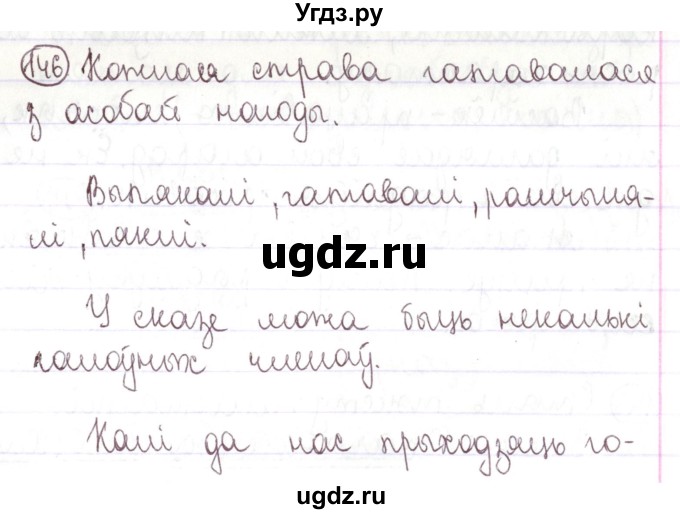 Угдз.ру
146 Кожная страва гатавалася
з асобай нагоды.
Выпякалі, гатавалі, рашчыня-
лі, пяклі.
ugdz.ru
У сказе можа быць некалькі
галоўных членаў.
Калі да нас прыходзяць го-
ugdz.ru